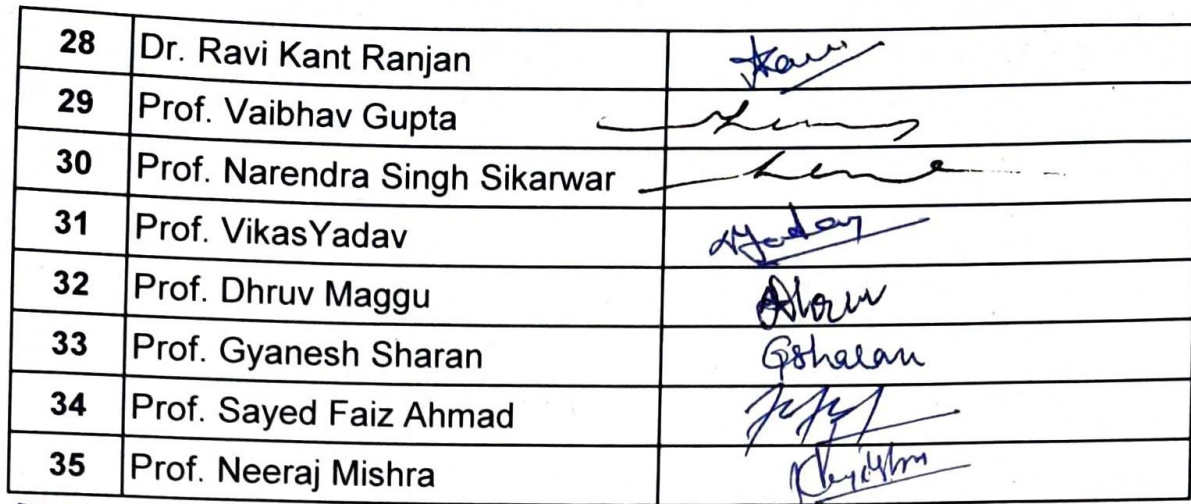 28 Dr. Ravi Kant Ranjan
29 Prof. Vaibhav Gupta
30 Prof. Narendra Singh Sikarwar
31 Prof. VikasYadav
32 Prof. Dhruv Maggu
33 Prof. Gyanesh Sharan Gsharan
34 Prof. Sayed Faiz Ahmad
35 Prof. Neeraj Mishra